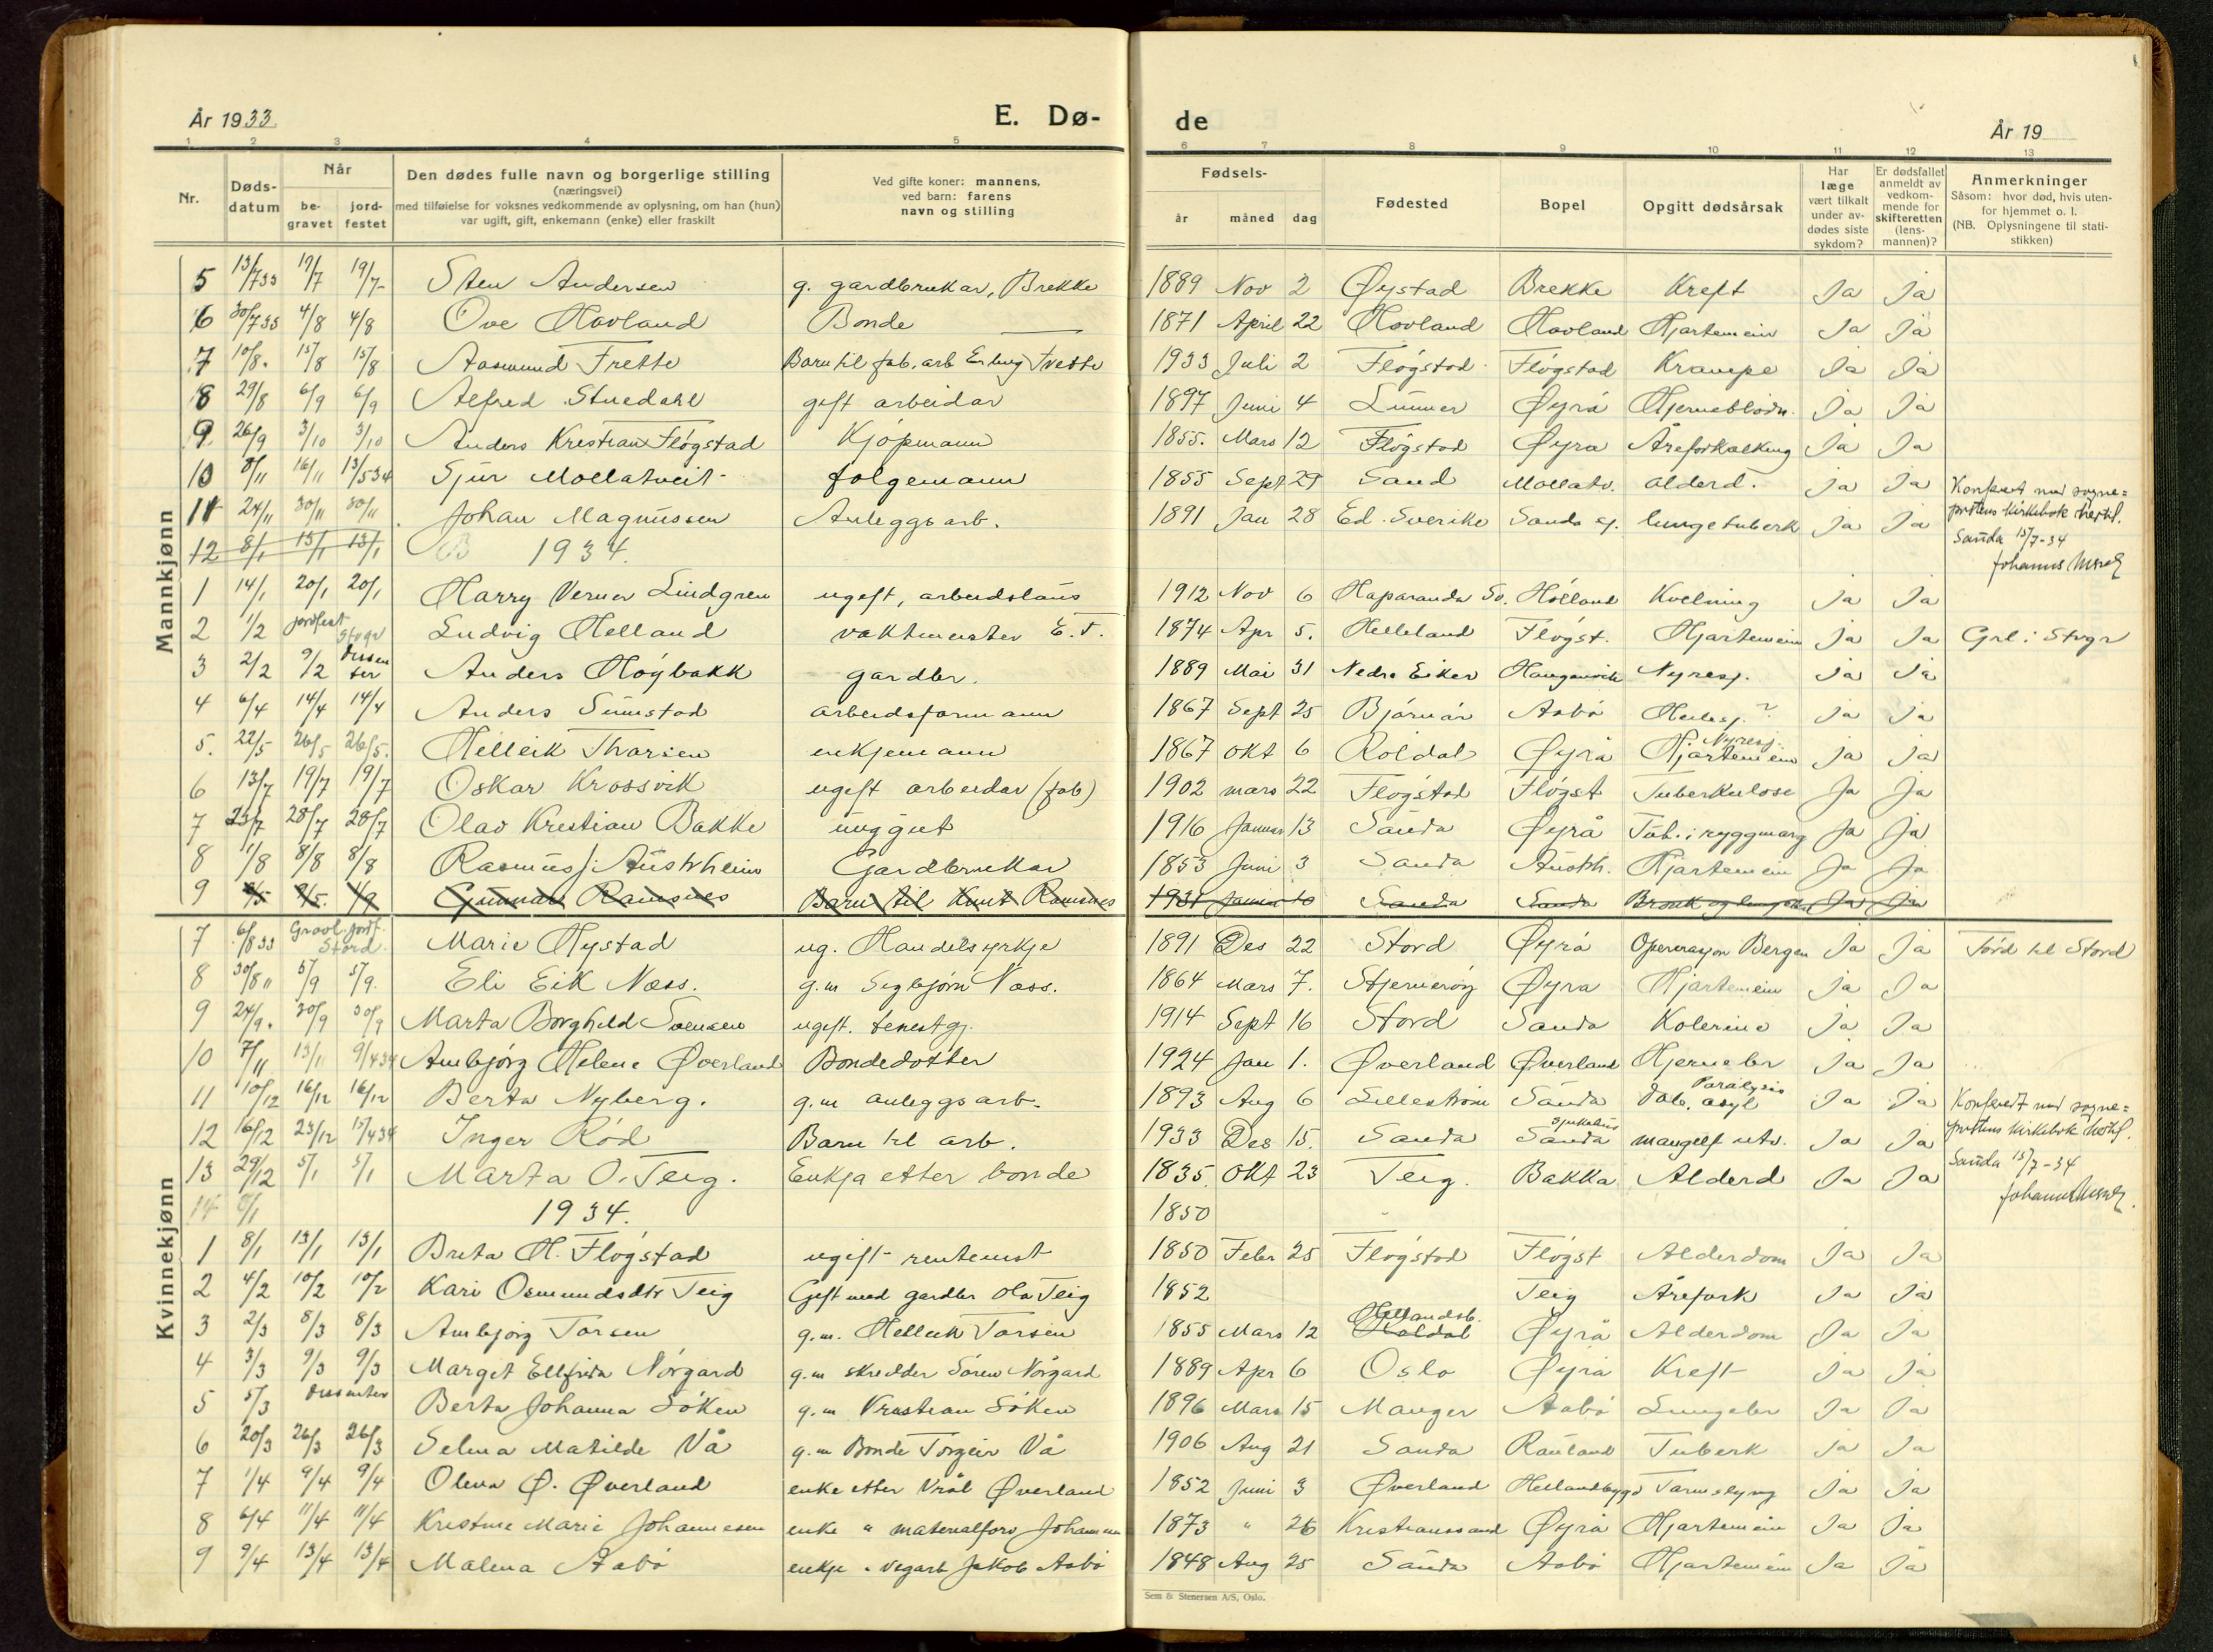 År 1933
E. Dø-
de
År 19
1 2 3 4 5
6 7 8 9 10 11 12 13
Nr.
Døds-
datum
Når
be-
gravet
jord-
festet
Den dødes fulle navn og borgerlige stilling
(næringsvei)
med tilføielse for voksnes vedkommende av oplysning, om han (hun)
var ugift, gift, enkemann (enke) eller fraskilt
Ved gifte koner: mannens,
ved barn: farens
navn og stilling
Fødsels-
år måned dag
Fødested
Bopel
Opgitt dødsårsak
Har
læge
vært tilkalt
under av-
dødes siste
sykdom?
Er dødsfallet
anmeldt av
vedkom-
mende for
skifteretten
(lens-
mannen)?
Anmerkninger
Såsom: hvor død, hvis uten-
for hjemmet o. l.
(NB. Oplysningene til stati-
stikken)
Mannkjønn
5 13/7 33 19/7 19/7 Sten Andersen g. gardbrukar, Brekke 1889 Nov 2 Øystad Brekke Kreft Ja Ja
6 30/7 33 4/8 4/8 Ove Hovland Bonde 1871 April 22 Hovland Hovland Hjartemein Ja Ja
7 10/8. 15/8 15/8 Aasmund Frette Barn til fab. arb Erling Frette 1933 Juli 2 Fløgstad Fløgstad Krampe Ja Ja
8 29/8 6/9 6/9 Alfred Stuedahl gift arbeidar 1897 Juni 4 Lunner Øyrå Hjerneblødn. Ja Ja
9 26/9 3/10 3/10 Anders Kristian Fløgstad Kjøpmann 1855. Mars 12 Fløgstad Øyra Åreforkalking Ja Ja
10 8/11 16/11 13/5 34 Sjur Mollatveit folgemann 1855 Sept 29 Sand Mollatv. alderd. Ja Ja
11 24/11 30/11 30/11 Johan Magnussen Anleggsarb. 1891 Jan 28 Ed. Sverike Sanda sj. lungetuberk Ja Ja
Konferert med sogne=
prestens kirkebok hertil.
Sauda 15/7-34
12 8/1 13/1 13/1 1934.
1 14/1 20/1 20/1 Harry Verner Lindgren ugift, arbeidslaus 1912 Nov 6 Haparanda Sv. Hølland Kvelning Ja Ja
2 1/2 jordfest Stvgr Ludvig Helland vaktmeister E.F. 1874 Apr 5. Helleland Fløgst. Hjartemein Ja Ja Grl i Stvgr
3 2/2 9/2 dissenter Anders Høgbakk gardbr. 1889 Mai 31 Nedre Eiker Haugenvik Nyresj. Ja Ja
4 6/4 14/4 14/4 Anders Sunnstad arbeidsformann 1867 Sept 25 Aabø Ja Ja
5. 22/5 26/5 26/5. Helleik Thorsen enkjemann 1867 Okt 6 Røldal Øyrå Nyresj. Hjartemein Ja Ja
6 13/7 19/7 19/7 Oskar Krossvik ugift arbeidar (fab) 1902 mars 22 Fløgstad Fløgst Tuberkulose Ja Ja
7 23/7 28/7 28/7 Olav Kristian Bakke unggut 1916 Januar 13 Sauda Øyrå Tub. i ryggmarg Ja Ja
8 1/8 8/8 8/8 Rasmus J. Austrheim Gardbrukar 1853 Juni 3 Sauda Austrh. Hjartemein Ja Ja
9 Gunnar Ramsnes Barn til Knut Ramsnes 1931 Januar 10 Sauda Sauda Ja Ja
Kvinnekjønn
7 6/8 33 Gravl. jordf. Stord. Marie Hystad ug. Handelsyrkje 1891 Des 22 Stord Øyrå Operasjon Bergen Ja Ja Førd til Stord
8 30/8 " 5/9 5/9. Eli Eik Næss. g.m Segbjørn Næss. 1864 Mars 7. Stjernerøy Øyra Hjartemein Ja Ja
9 24/9. 30/9 30/9 Marta Borghild Svensen ugift. tenestgj. 1914 Sept 16 Stord Sauda Kolerine Ja Ja
10 7/11 13/11 9/4 34 Ambjørg Helene Øverland Bondedotter 1924 Jan 1. Øverland Øverland Hjernebr Ja Ja
11 10/12 16/12 16/12 Berta Nyberg. g.m anleggsarb. 1893 Aug 6 Lillestrøm Sauda Dale asyl Paralysis Ja Ja
12 16/12 23/12 15/4 34 Inger Rød Barn til arb. 1933 Des 15. Sauda Sjukehus Sauda mangelf utv. Ja Ja
13 29/12 5/1 5/1 Marta O. Teig. Enkja etter bonde 1835. Okt 23 Teig. Bakka Alderd Ja Ja
Konferert med sogne=
prestens kirkebok hertil.
Sauda 15/7-34
14 8/1 1934. 1850
1 8/1 13/1 13/1 Brita H. Fløgstad ugift rentenist 1850 Febr 25 Fløgstad Fløgst Alderdom Ja Ja
2 4/2 10/2 10/2 Kari Osmundsdtr Teig Gift med gardbr Ola Teig 1852 Teig Årefork Ja Ja
3 2/3 8/3 8/3 Ambjørg Torsen g.m. Helleik Torsen 1855 Mars 12 Hellandsb. Røldal Øyrå Alderdom Ja Ja
4 3/3 9/3 9/3 Margit Ellfrida Nørgard g.m skredder Søren Nørgard 1889 Apr 6 Oslo Øyrå Kreft Ja Ja
5 5/3 dissenter Berta Johanna Søken g.m Kristian Søken 1896 Mars 15 Manger Aabø Lungebr Ja Ja
6 20/3 26/3 26/3 Selma Matilde Vå g.m Bonde Torgeir Vå 1906 Aug 21 Sauda Rauland Tuberk Ja Ja
7 1/4 9/4 9/4 Olena Ø. Øverland enke etter Vrål Øverland 1852 Juni 3 Øverland Hellandbygd Tarmslyng Ja Ja
8 6/4 11/4 11/4 Kristine Marie Johannesen enke " materialforv Johannesen 1873 " 26 Kristianssand Øyrå Hjartemein Ja Ja
9 9/4 13/4 13/4 Malena Aabø enkje " vegarb Jakob Aabø 1848 Aug 25 Sauda Aabø Hjartemein Ja Ja
Sem & Stenersen A/S, Oslo.